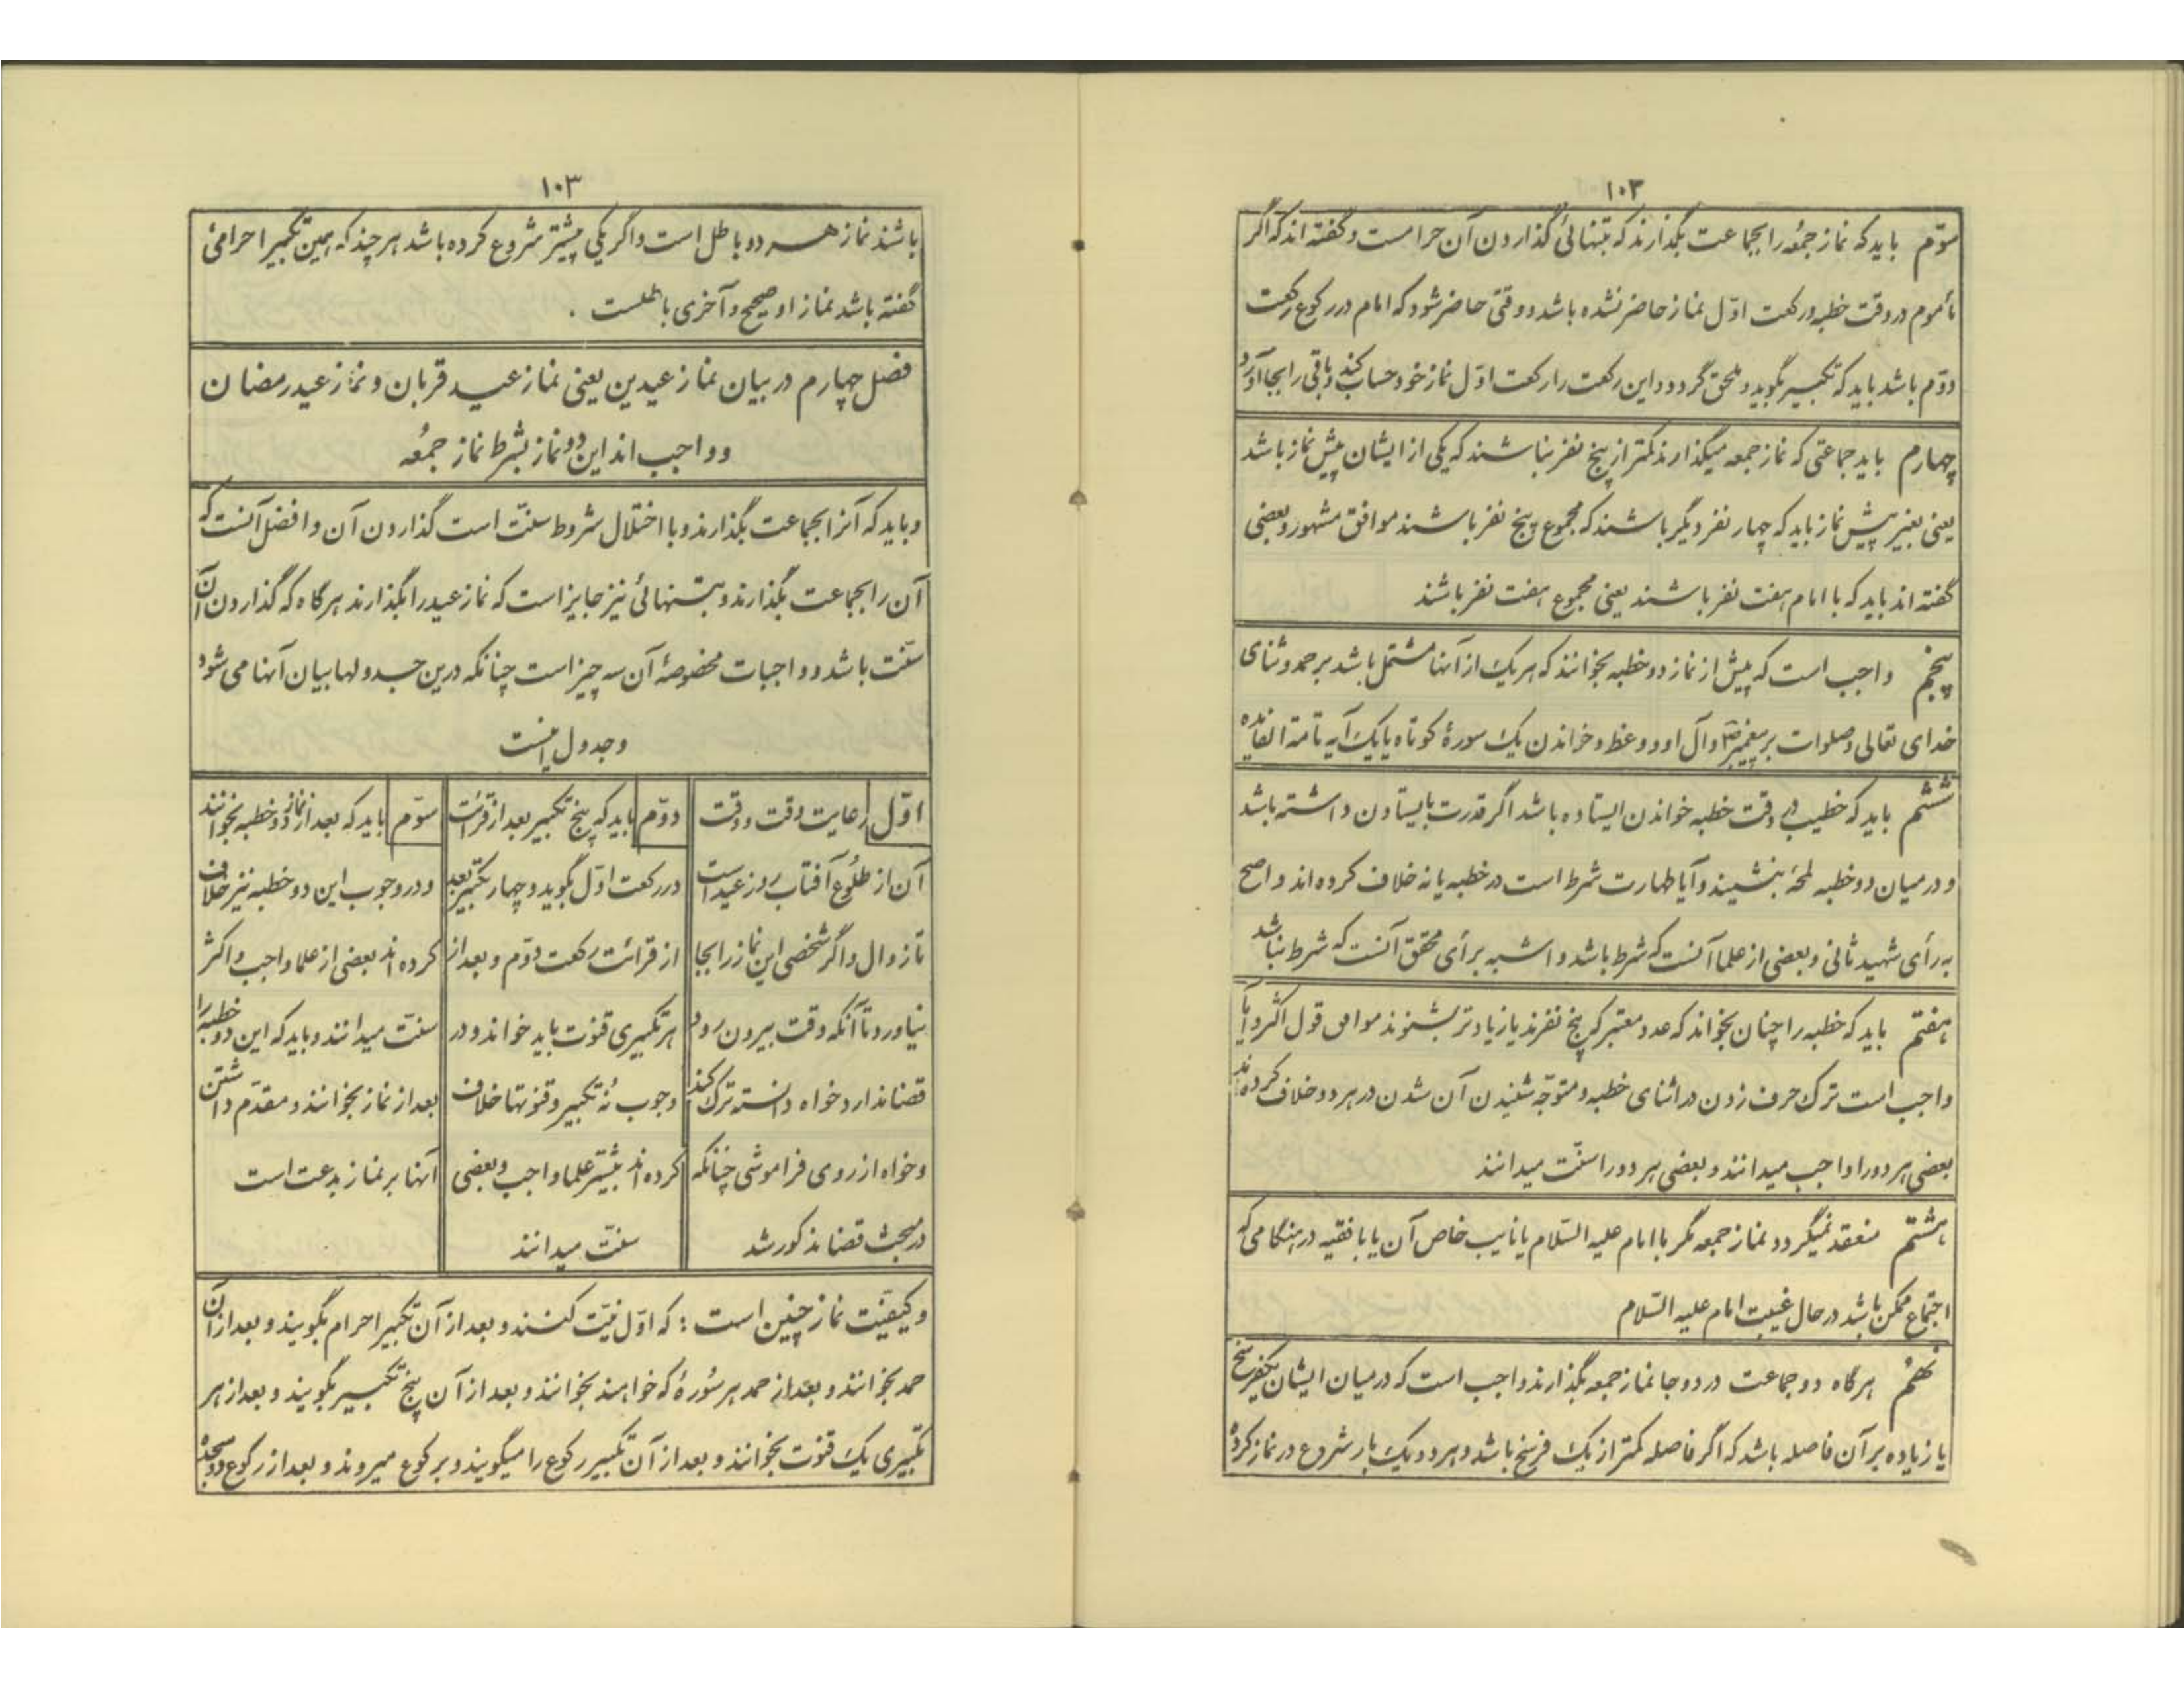 ۱۰۲
سوّم باید که نماز جمُعه را بجماعت بگذارند که بتنهائی گذاردن آن حرامست و گفته اند که اگر
مأموم در وقت خطبه و رکعت اوّل نماز حاضر نشده باشد و وقتی حاضر شود که امام در رکوع رکعت
دوّم باشد باید که تکبیر بگوید و ملحق گردد و این رکعت را رکعت اوّل نماز خود حساب کند و باقی را بجا آورد
چهارم باید جماعتی که نماز جمعه میگذارند کمتر از پنج نفر نباشند که یکی از ایشان پیش نماز باشد
یعنی بغیر پیش نماز باید که چهار نفر دیگر باشند که مجموع پنج نفر باشند موافق مشهور و بعضی
گفته اند باید که با امام هفت نفر باشند یعنی مجموع هفت نفر باشند
پنجم واجب است که پیش از نماز دو خطبه بخوانند که هر یک از آنها مشتمل باشد بر حمد و ثنای
خدای تعالی و صلوات بر پیغمبر ص و آل او و وعظ و خواندن یک سورهٔ کوتاه یا یک آیه تامة الفایده
ششم باید که خطیب در وقت خطبه خواندن ایستاده باشد اگر قدرت بایستادن داشته باشد
و در میان دو خطبه لمحهٔ بنشیند و آیا طهارت شرط است در خطبه یا نه خلاف کرده اند و اصح
به رأی شهید ثانی و بعضی از علما آنست که شرط باشد و اشبه برأی محقق آنست که شرط نباشد
هفتم باید که خطبه را چنان بخواند که عدد معتبر که پنج نفرند یا زیادتر بشنوند موافق قول اکثر و آیا
واجب است ترک حرف زدن در اثنای خطبه و متوجّه شنیدن آن شدن در هر دو خلاف کرده اند
بعضی هر دو را واجب میدانند و بعضی هر دو را سنّت میدانند
هشتم منعقد نمیگردد نماز جمعه مگر با امام علیه السّلام یا نایب خاص آن یا با فقیه در هنگامی که
اجتماع ممکن باشد در حال غیبت امام علیه السّلام
نهُم هرگاه دو جماعت در دو جا نماز جمعه بگذارند واجب است که در میان ایشان یکفرسخ
یا زیاده بر آن فاصله باشد که اگر فاصله کمتر از یک فرسخ باشد و هر دو یک بار شروع در نماز کرده
۱۰۳
باشند نماز هر دو باطل است و اگر یکی پیشتر شروع کرده باشد هر چند که همین تکبیر احرامی
گفته باشد نماز او صحیح و آخری باطلست .
فصل چهارم در بیان نماز عیدین یعنی نماز عید قربان و نماز عید رمضان
و واجب اند این دو نماز بشرط نماز جمعُه
و باید که آنرا بجماعت بگذارند و با اختلال شروط سنّت است گذاردن آن و افضل آنست که
آن را بجماعت بگذارند و بتنهائی نیز جایز است که نماز عید را بگذارند هر گاه که گذاردن آن
سنّت باشد و واجبات مخصوصهٔ آن سه چیز است چنانکه درین جدولها بیان آنها می شود
و جدول اینست
اوّل رعایت وقت و وقت
آن از طلُوع آفتاب روز عید است
تا زوال و اگر شخصی این نماز را بجا
نیاورد تا آنکه وقت بیرون رود
قضا ندارد خواه دانسته ترک کند
و خواه از روی فراموشی چنانکه
در مبحث قضا مذکور شد
دوّم باید که پنج تکبیر بعد از قرائت
در رکعت اوّل بگوید و چهار تکبیر بعد
از قرائت رکعت دوّم و بعد از
هر تکبیری قنوت باید خواند و در
وجوب نُه تکبیر و قنوتها خلاف
کرده اند بیشتر علما واجب و بعضی
سنّت میدانند
سوّم باید که بعد از نماز دو خطبه بخوانند
و در وجوب این دو خطبه نیز خلاف
کرده اند بعضی از علما واجب و اکثر
سنّت میدانند و باید که این دو خطبه را
بعد از نماز بخوانند و مقدّم داشتن
آنها بر نماز بدعت است
و کیفیّت نماز چنین است : که اوّل نیّت کنند و بعد از آن تکبیر احرام بگویند و بعد از آن
حمد بخوانند و بعد از حمد هر سُورهٔ که خواهند بخوانند و بعد از آن پنج تکبیر بگویند و بعد از هر
تکبیری یک قنوت بخوانند و بعد از آن تکبیر رکوع را میگویند و برکوع میروند و بعد از رکوع دو سجده